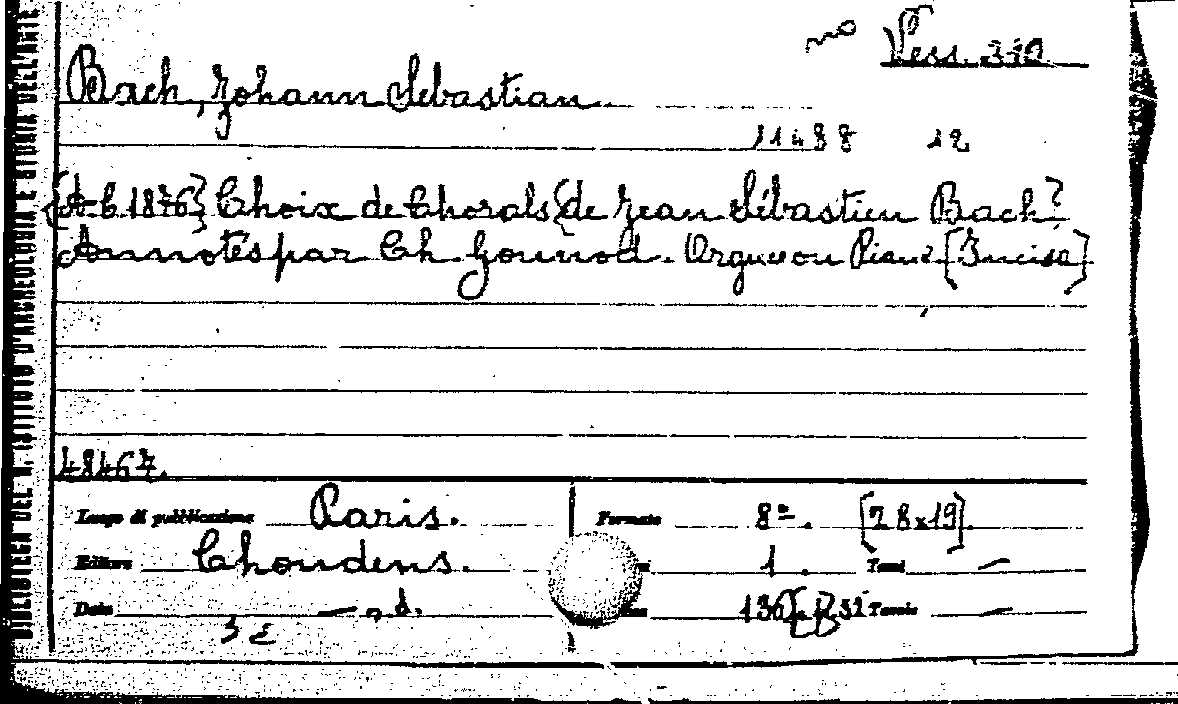 Vess. 310
Bach, Johann Sebastian.
11488 12
[A.C. 1876] Choix de Chorals [de Jean Sébastien Bach]
Annotés par Ch. Gounod. Orgue ou Piano [Incisa]
48467.
Luogo di pubblicazione Paris. Formato 8º. [28x19].
Editore Choudens. 1. Tomi —
Data — n.d. 136 Tavole —
BIBLIOTECA DEL R. ISTITUTO D'ARCHEOLOGIA E STORIA DELL'ARTE